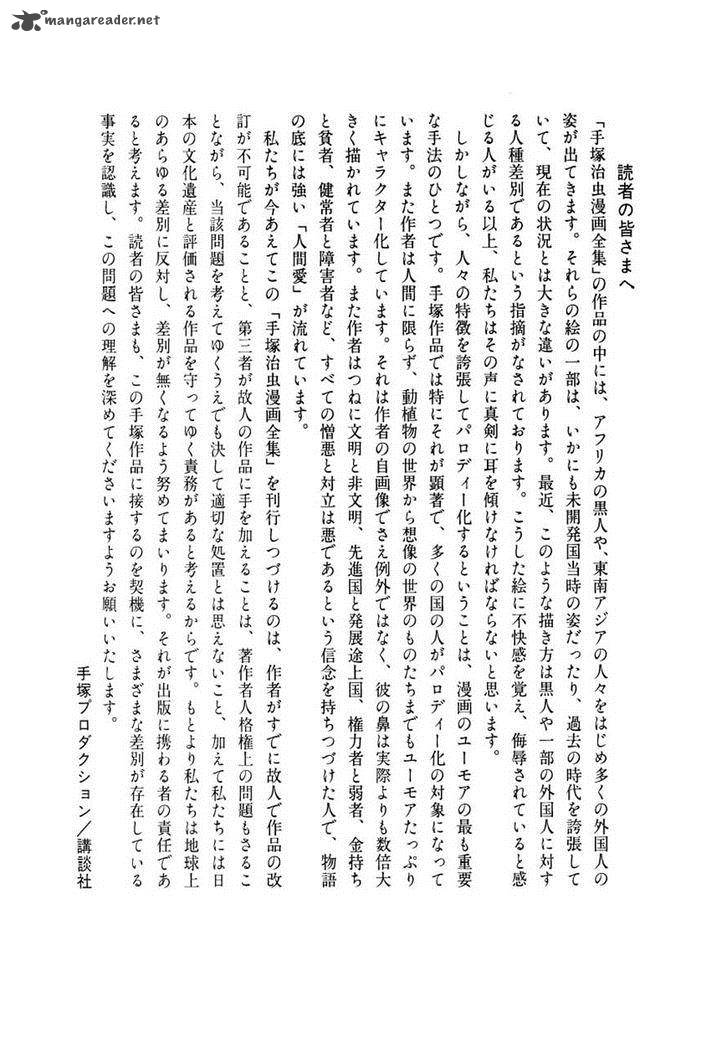 mangareader.net
読者の皆さまへ
「手塚治虫漫画全集」の作品の中には、アフリカの黒人や、東南アジアの人々をはじめ多くの外国人の
姿が出てきます。それらの絵の一部は、いかにも未開発国当時の姿だったり、過去の時代を誇張して
いて、現在の状況とは大きな違いがあります。最近、このような描き方は黒人や一部の外国人に対す
る人種差別であるという指摘がなされております。こうした絵に不快感を覚え、侮辱されていると感
じる人がいる以上、私たちはその声に真剣に耳を傾けなければならないと思います。
しかしながら、人々の特徴を誇張してパロディー化するということは、漫画のユーモアの最も重要
な手法のひとつです。手塚作品では特にそれが顕著で、多くの国の人がパロディー化の対象になって
います。また作者は人間に限らず、動植物の世界から想像の世界のものたちまでもユーモアたっぷり
にキャラクター化しています。それは作者の自画像でさえ例外ではなく、彼の鼻は実際よりも数倍大
きく描かれています。また作者はつねに文明と非文明、先進国と発展途上国、権力者と弱者、金持ち
と貧者、健常者と障害者など、すべての憎悪と対立は悪であるという信念を持ちつづけた人で、物語
の底には強い「人間愛」が流れています。
私たちが今あえてこの「手塚治虫漫画全集」を刊行しつづけるのは、作者がすでに故人で作品の改
訂が不可能であることと、第三者が故人の作品に手を加えることは、著作者人格権上の問題もさるこ
とながら、当該問題を考えてゆくうえでも決して適切な処置とは思えないこと、加えて私たちには日
本の文化遺産と評価される作品を守ってゆく責務があると考えるからです。もとより私たちは地球上
のあらゆる差別に反対し、差別が無くなるよう努めてまいります。それが出版に携わる者の責任であ
ると考えます。読者の皆さまも、この手塚作品に接するのを契機に、さまざまな差別が存在している
事実を認識し、この問題への理解を深めてくださいますようお願いいたします。
手塚プロダクション／講談社